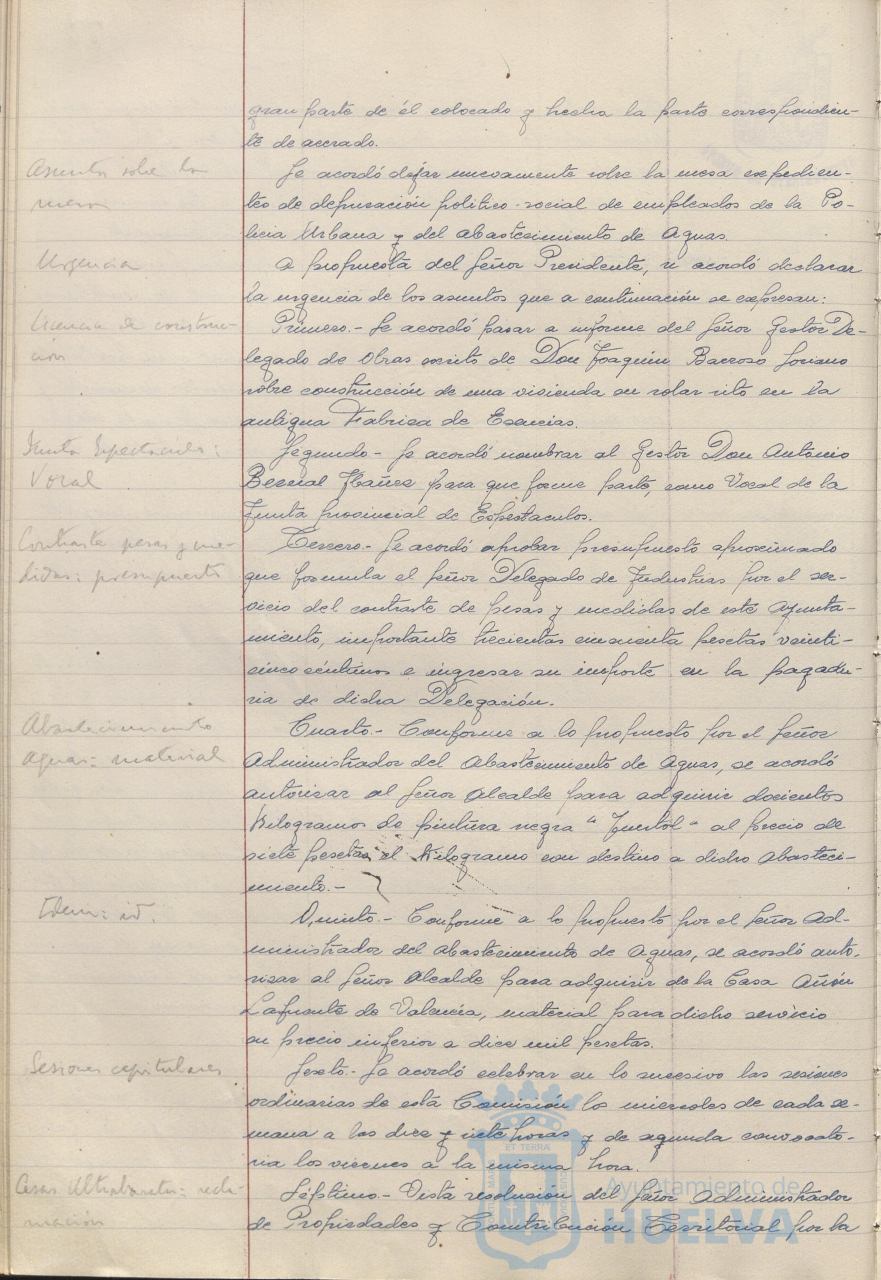 gran parte de él colocado y hecha la parte correspondien-
te de acerado.
Asuntos sobre la
mesa
Se acordó dejar nuevamente sobre la mesa expedien-
tes de depuración político-social de empleados de la Po-
licia Urbana y del abastecimiento de Aguas.
Urgencia
A propuesta del Señor Presidente, se acordó declarar
la urgencia de los asuntos que a continuación se expresan:
Licencia de construc-
ción
Primero.- Se acordó pasar a informe del Señor Gestor De-
legado de Obras escrito de Don Joaquín Barroso Soriano
sobre construcción de una vivienda en solar sito en la
antigua Fabrica de Esencias.
Junta Espectaculos:
Vocal
Segundo - Se acordó nombrar al Gestor Don Antonio
Bernal Ibañez para que forme parte, como Vocal de la
Junta provincial de Espectaculos.
Contraste pesas y me-
didas: presupuesto
Tercero.- Se acordó aprobar presupuesto aproximado
que formula el Señor Delegado de Industrias por el ser-
vicio del contraste de pesas y medidas de este Ayunta-
miento, importante trecientas cincuenta pesetas veinti-
cinco céntimos e ingresar su importe en la pagadu-
ria de dicha Delegación.
Abastecimiento
Aguas: material
Cuarto.- Conforme a lo propuesto por el Señor
Administrador del Abastecimiento de Aguas, se acordó
autorizar al Señor Alcalde para adquirir docientos
Kilogramos de pintura negra " " al precio de
siete pesetas el Kilogramo con destino a dicho abasteci-
miento.-
Idem: id.
Quinto.- Conforme a lo propuesto por el Señor Ad-
ministrador del abastecimiento de Aguas, se acordó auto-
rizar al Señor Alcalde para adquirir de la Casa
Lafuente de Valencia, material para dicho servicio
en precio inferior a diez mil pesetas.
Sesiones capitulares
Sexto.- Se acordó celebrar en lo sucesivo las sesiones
ordinarias de esta Comisión los miercoles de cada se-
mana a las diez y siete horas y de segunda convocato-
ria los viernes a la misma hora.
Casas Ultrabaratas: recla-
mación
Séptimo.- Vista resolución del Señor Administrador
de Propiedades y Contribución Territorial por la
Ayuntamiento de
HUELVA